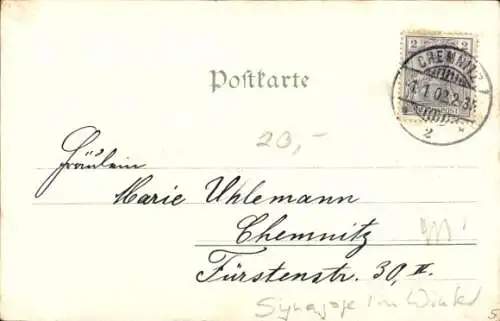 2 2
CHEMNITZ
1.1.02.2-3N.
2
Postkarte
20,-
Fräulein
Marie Uhlemann
Chemnitz
Fürstenstr. 30, II.
Synagoge im Winter